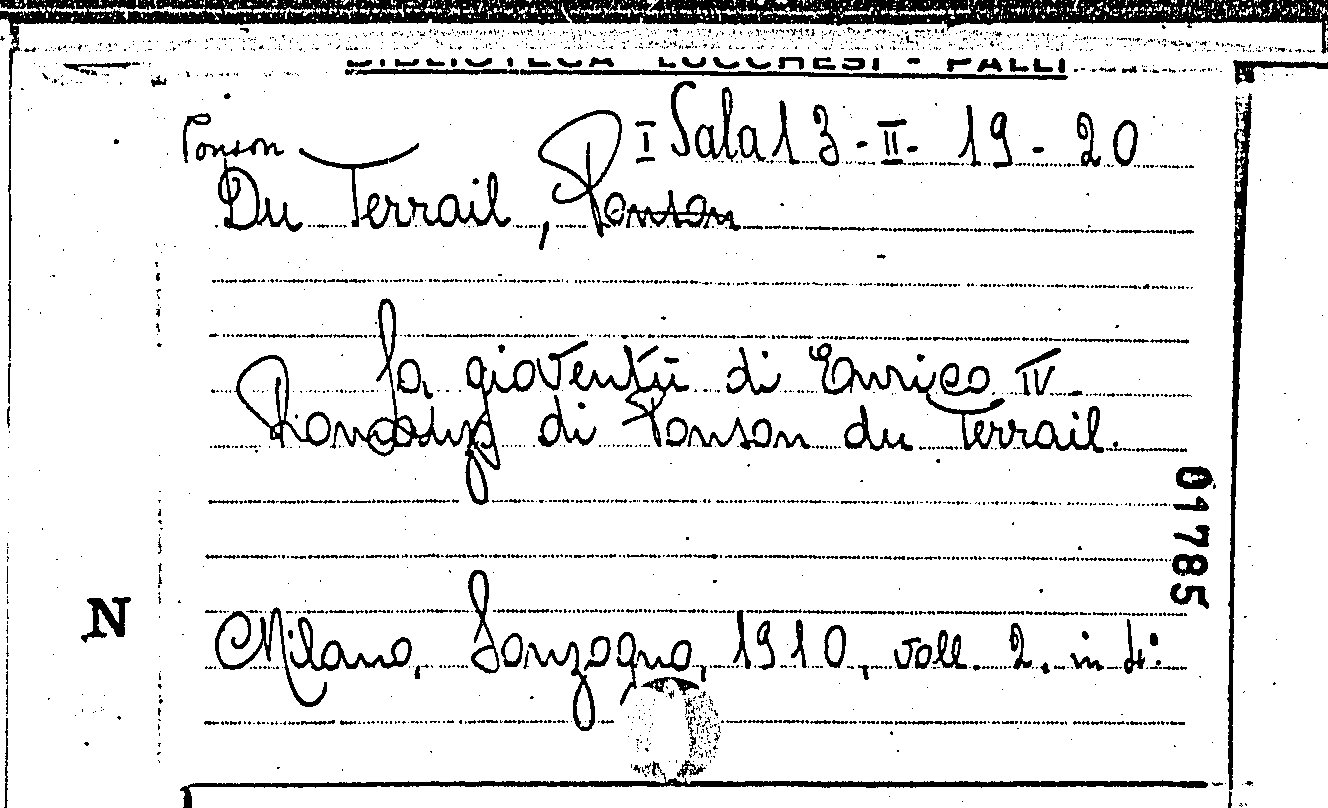 BIBLIOTECA LUCCHESI - PALLI
I Sala 13 - II - 19 - 20
Ponson
Du Terrail, Ponson
La gioventù di Enrico IV
di Ponson du Terrail.
01785
N
Milano, Sonzogno, 1910, voll. 2. in 4°.